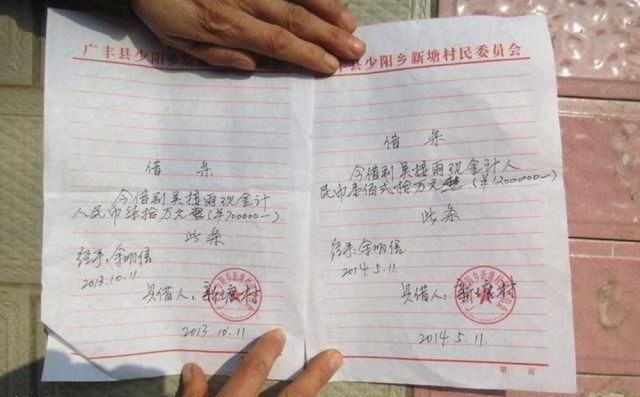 广丰县少阳乡新
借条
今借到吴接雨现金计
人民币柒拾万元整(¥700000—)
此条
经手:余明信
2013.10.11.
具借人:新塘村
2013.10.11
丰县少阳乡新塘村民委员会
借条
今借到吴接雨现金计人
民币壹佰贰拾万元整(¥1200000—)
此条
经手:余明信
2014.5.11.
具借人:新塘村
2014.5.11.
第 页